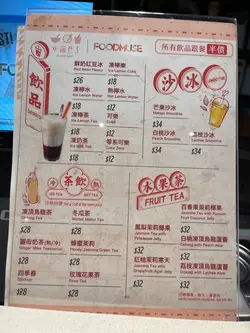 FOODMUSE
所有飲品跟餐半價
飲品
鮮奶紅豆冰
Red Bean Fleecy
$26
凍檸水
Ice Lemon Water
$18
凍檸茶
Ice Lemon Tea
$18
凍奶茶
Ice Milk Tea
$18
凍檸樂
Ice Lemon Coke
$18
熱檸水
Hot Lemon Water
$12
可樂
Coke
$12
零系可樂
Coke Zero
$12
沙冰
芒果沙冰
Mango Smoothie
$34
白桃沙冰
$34
荔枝沙冰
$34
冷 茶飲 熱
凍頂烏龍茶
$28
冬瓜茶
Winter Melon Tea
$28
薑母奶茶(熱/凍)
$28
蜂蜜茉莉
Honey Jasmine Green Tea
$28
四季春
$28
玫瑰花果茶
Rose Tea
$28
水果茶
FRUIT TEA
鳳梨茉莉椰果
Jasmine Tea with
Pineapple Jelly
$32
百香果茉莉椰果
Jasmine Tea with Passion
Fruit Coconut Jelly
$32
紅柚茉莉寒天
Jasmine Tea with
Grapefruit Agar Jelly
$32
白桃凍頂烏龍蘆薈
Oolong with Peach Aloe
$32
荔枝凍頂烏龍蘆薈
Oolong with Lychee Aloe
$32